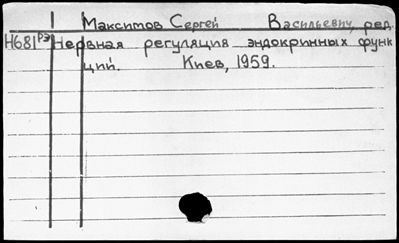 Максимов Сергей Васильевич, ред.
Н681РЭ Нервная регуляция эндокринных функ
ций. Киев, 1959.